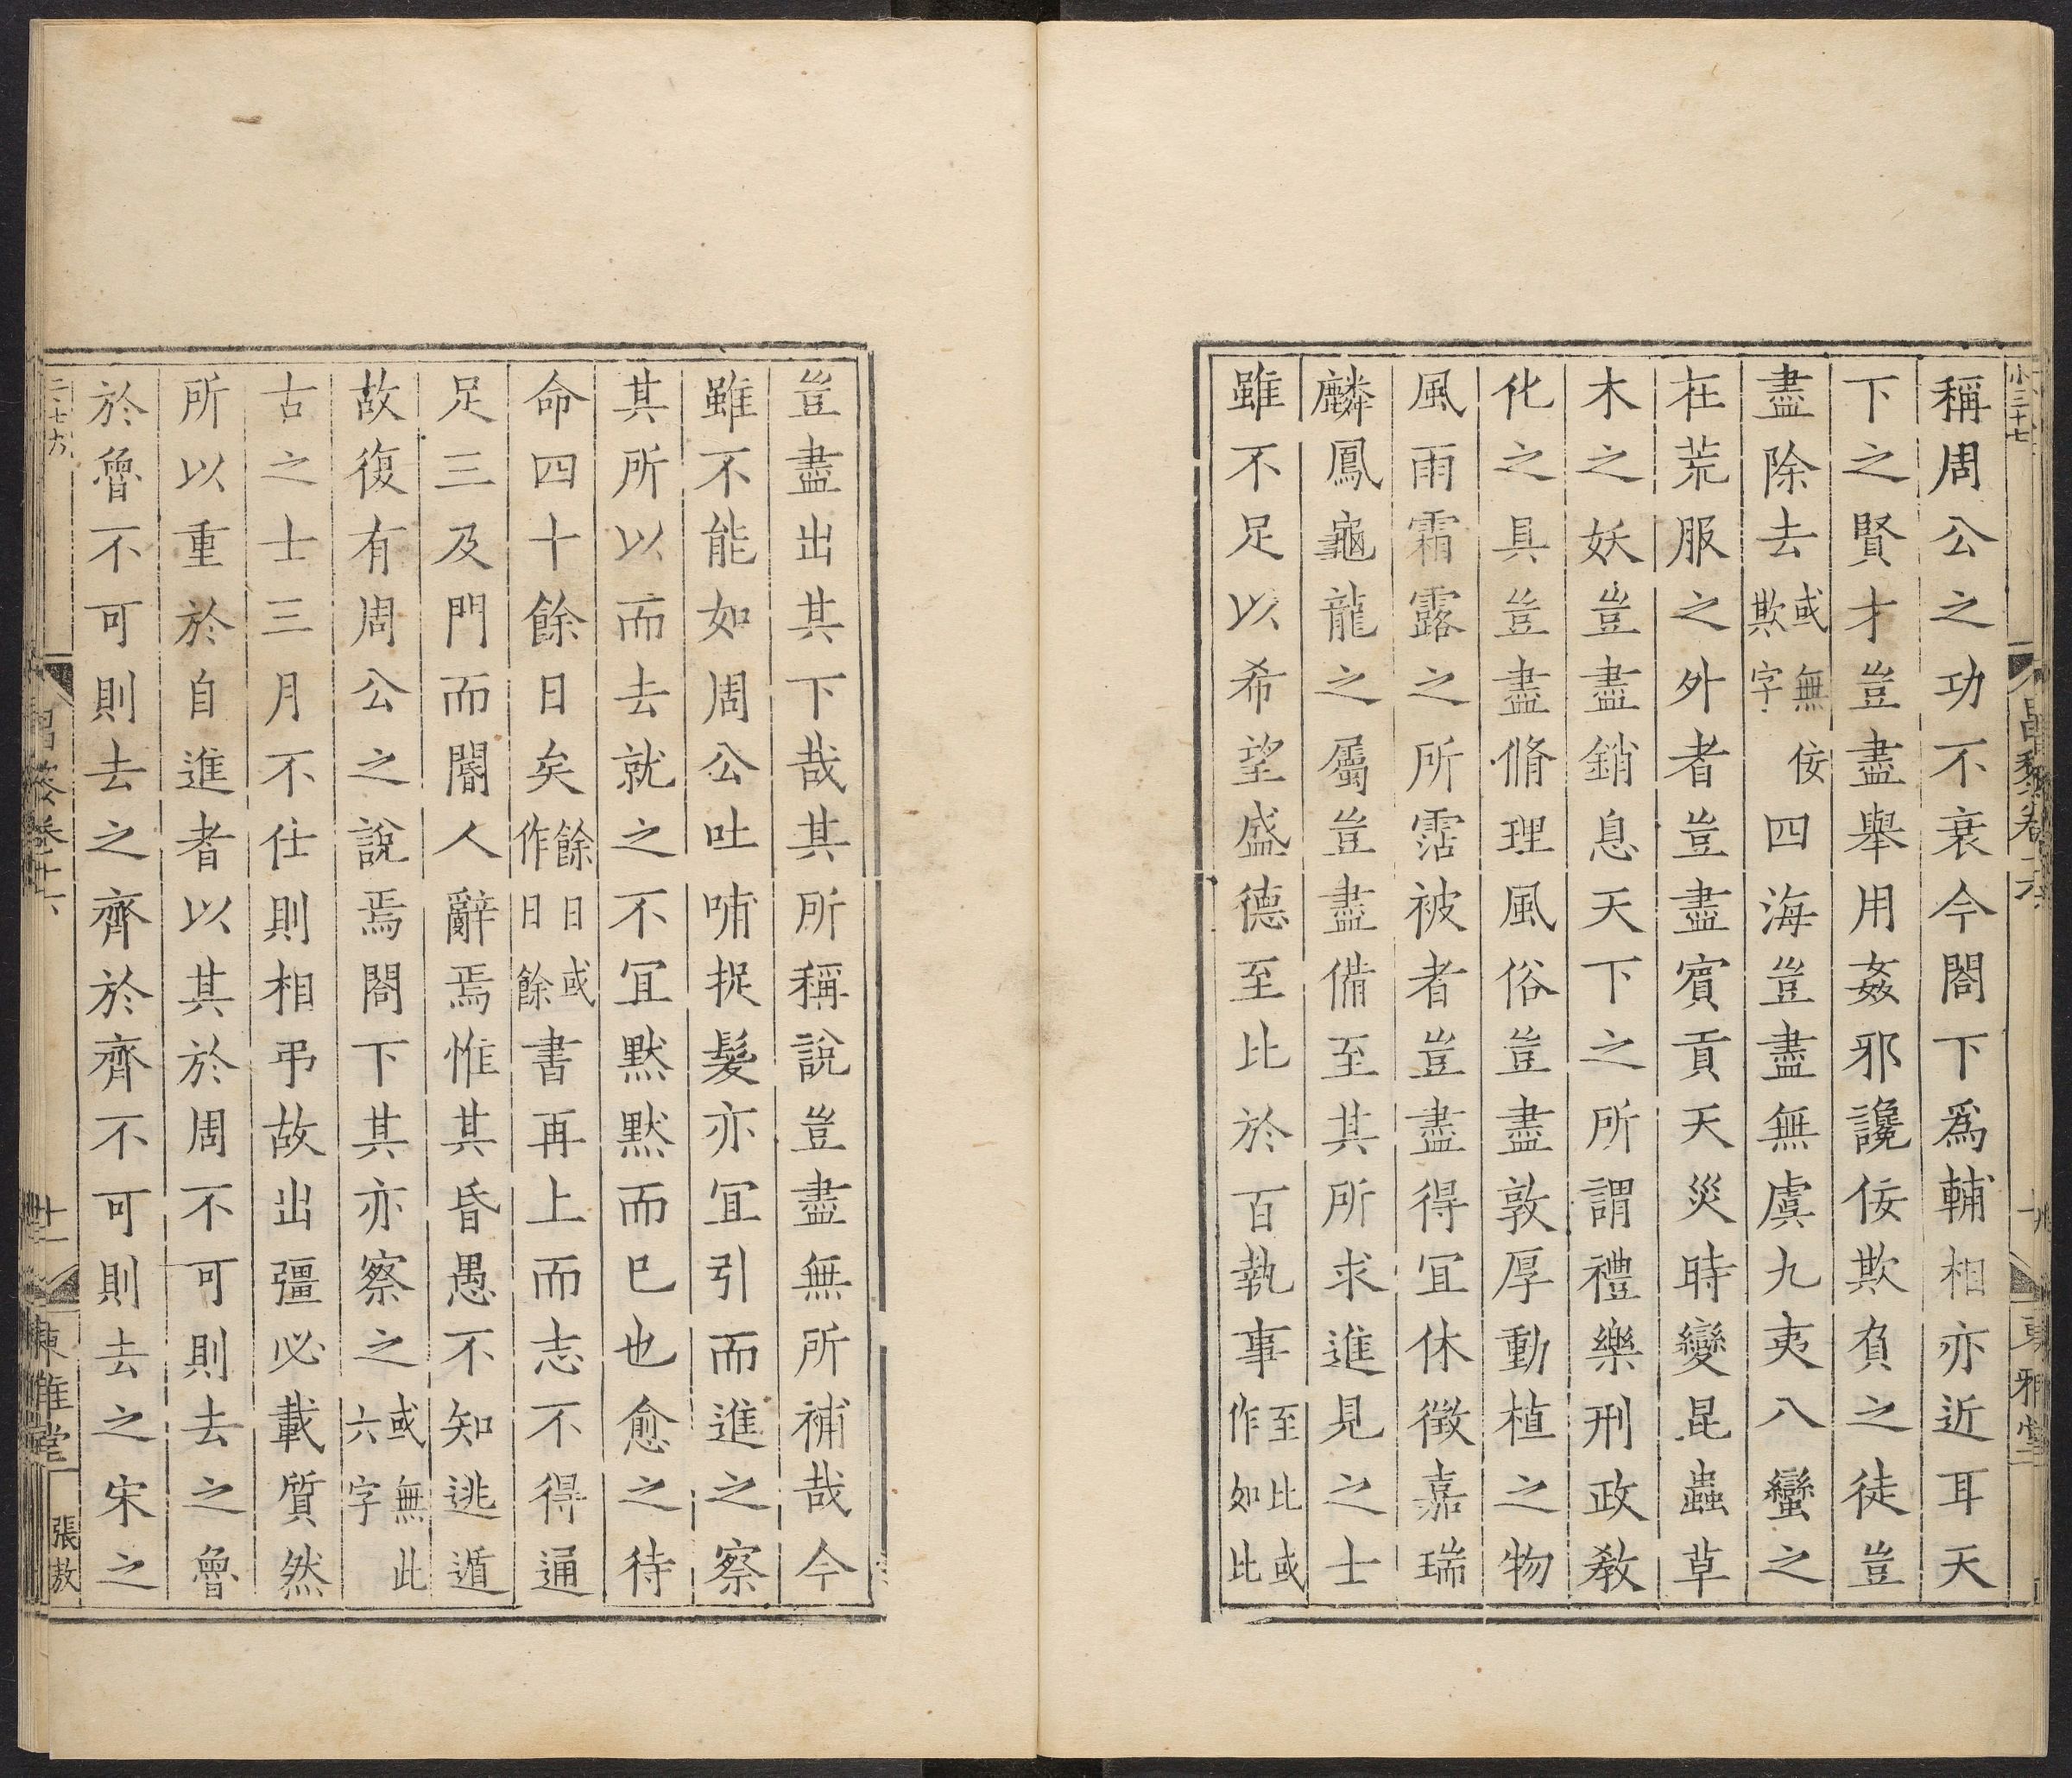 稱周公之功不衰今閤下爲輔相亦近耳天
下之賢才豈盡舉用姦邪讒佞欺負之徒豈
盡除去或無佞欺字四海豈盡無虞九夷八蠻之
在荒服之外者豈盡賓貢天災時變昆蟲草
木之妖豈盡銷息天下之所謂禮樂刑政教
化之具豈盡脩理風俗豈盡敦厚動植之物
風雨霜露之所霑被者豈盡得宜休徵嘉瑞
麟鳳龜龍之屬豈盡備至其所求進見之士
雖不足以希望盛德至比於百執事至比或作如比
豈盡出其下哉其所稱說豈盡無所補哉今
雖不能如周公吐哺捉髮亦宜引而進之察
其所以而去就之不宜默默而已也愈之待
命四十餘日矣餘日或作日餘書再上而志不得通
足三及門而閽人辭焉惟其昏愚不知逃遁
故復有周公之說焉閤下其亦察之或無此六字
古之士三月不仕則相弔故出彊必載質然
所以重於自進者以其於周不可則去之魯
於魯不可則去之齊於齊不可則去之宋之
小三十七
東雅堂
東雅堂
張敖